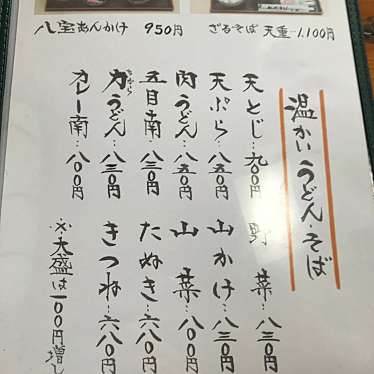 八宝あんかけ 950円
ざるそば 天重 1,100円
温かいうどん・そば
天とじ…九〇〇円
天ぷら…八五〇円
肉うどん…八五〇円
五目南…八三〇円
力うどん…八三〇円
ちから
カレー南…八〇〇円
野菜 八三〇円
山かけ…八三〇円
山菜 八〇〇円
たぬき…六八〇円
きつね…六八〇円
※大盛は一〇〇円増し